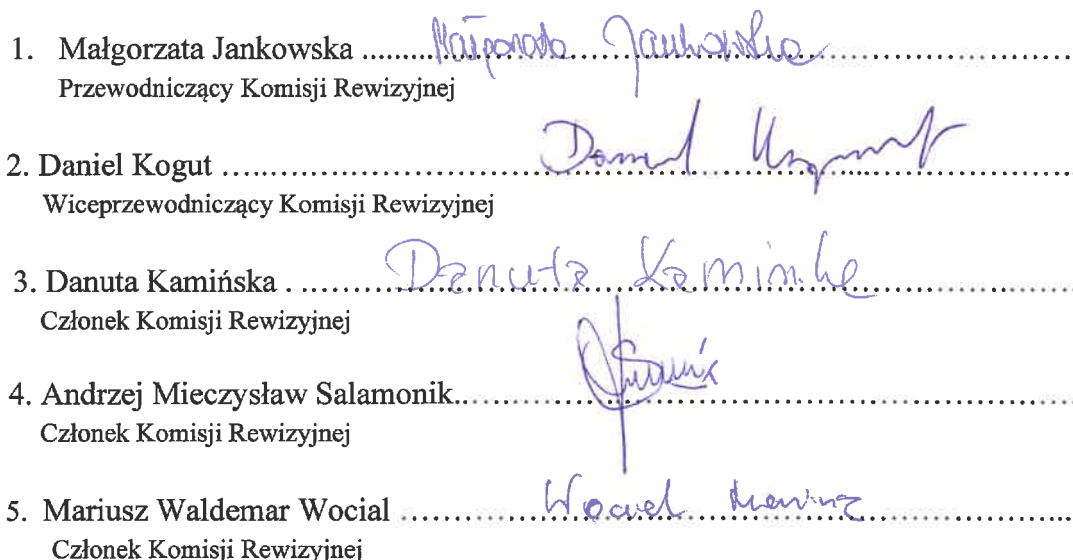 1. Małgorzata Jankowska .......... Małgorzata Jankowska ..........
Przewodniczący Komisji Rewizyjnej
2. Daniel Kogut .......... Daniel ..........
Wiceprzewodniczący Komisji Rewizyjnej
3. Danuta Kamińska . .......... Danuta Kamińska ..........
Członek Komisji Rewizyjnej
4. Andrzej Mieczysław Salamonik..........
Członek Komisji Rewizyjnej
5. Mariusz Waldemar Wocial .......... Wocial Mariusz ..........
Członek Komisji Rewizyjnej